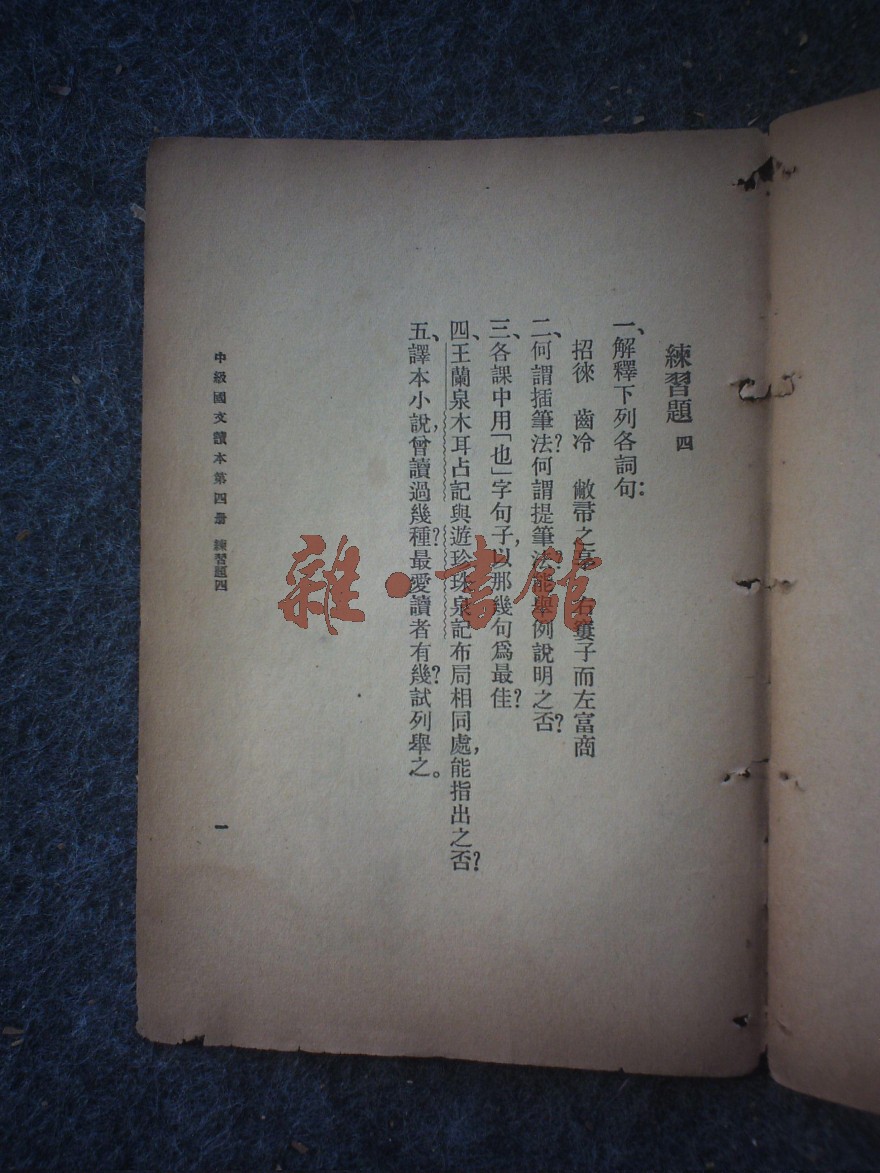 練習題 四
一、解釋下列各詞句：
招徠 齒冷 敝帚之享 右窶子而左富商
二、何謂插筆法？何謂提筆法？能舉例說明之否？
三、各課中用「也」字句子，以那幾句爲最佳？
四、王蘭泉木耳占記與遊珍珠泉記布局相同處，能指出之否？
五、譯本小說，曾讀過幾種？最愛讀者有幾？試列舉之。
中級國文讀本第四册 練習題四
一
雜·書館